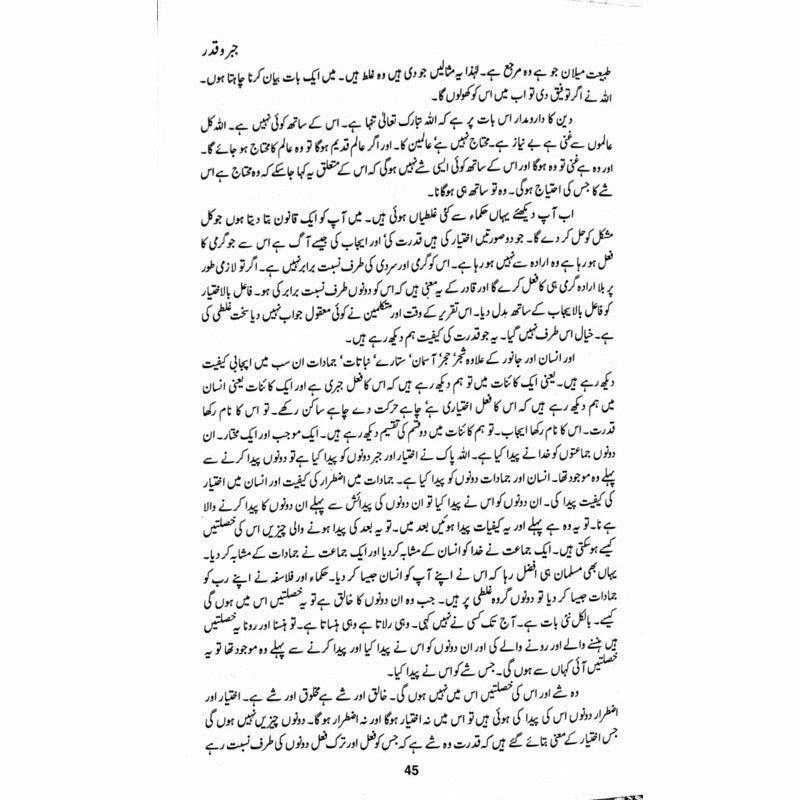 جبر و قدر
طبیعت میلان جو ہے وہ مرجع ہے۔ لہٰذا یہ مثالیں جو دی ہیں وہ غلط ہیں۔ میں ایک بات بیان کرنا چاہتا ہوں۔
اللہ نے اگر توفیق دی تو اب میں اس کو کھولوں گا۔
دین کا دارومدار اس بات پر ہے کہ اللہ تبارک تعالیٰ تنہا ہے۔ اس کے ساتھ کوئی نہیں ہے۔ اللہ کل
عالموں سے غنی ہے بے نیاز ہے۔ محتاج نہیں ہے‘ عالمین کا۔ اور اگر عالم قدیم ہوگا تو وہ عالم کا محتاج ہو جائے گا۔
اور وہ ہے غنی تو وہ ہوگا اور اس کے ساتھ کوئی ایسی شے نہیں ہوگی کہ اس کے متعلق یہ کہا جاسکے کہ وہ محتاج ہے اس
شے کا جس کی احتیاج ہوگی۔ وہ تو ساتھ ہی ہوگا نا۔
اب آپ دیکھئے یہاں حکماء سے کئی غلطیاں ہوئی ہیں۔ میں آپ کو ایک قانون بتا دیتا ہوں جو کل
مشکل کو حل کر دے گا۔ جو دو صورتیں اختیار کی ہیں قدرت کی‘ اور ایجاب کی جیسے آگ ہے اس سے جو گرمی کا
فعل ہو رہا ہے وہ ارادہ سے نہیں ہو رہا ہے۔ اس کو گرمی اور سردی کی طرف نسبت برابر نہیں ہے۔ اگر تو لازمی طور
پر بلا ارادہ گرمی ہی کا فعل کرے گا اور قادر کے یہ معنی ہیں کہ اس کو دونوں طرف نسبت برابر کی ہو۔ فاعل بالاختیار
کو فاعل بالایجاب کے ساتھ بدل دیا۔ اس تقریر کے وقت اور متکلمین نے کوئی معقول جواب نہیں دیا سخت غلطی کی
ہے۔ خیال اس طرف نہیں گیا۔ یہ جو قدرت کی کیفیت ہم دیکھ رہے ہیں۔
اور انسان اور جانور کے علاوہ شجر‘ حجر‘ آسمان‘ ستارے‘ نباتات‘ جمادات ان سب میں ایجابی کیفیت
دیکھ رہے ہیں۔ یعنی ایک کائنات میں تو ہم دیکھ رہے ہیں کہ اس کا فعل جبری ہے اور ایک کائنات یعنی انسان
میں ہم دیکھ رہے ہیں کہ اس کا فعل اختیاری ہے‘ چاہے حرکت دے چاہے ساکن رکھے۔ تو اس کا نام رکھا
قدرت۔ اس کا نام رکھا ایجاب۔ تو ہم کائنات میں دو قسم کی تقسیم دیکھ رہے ہیں۔ ایک موجب اور ایک مختار۔ ان
دونوں جماعتوں کو خدا نے پیدا کیا ہے۔ اللہ پاک نے اختیار اور جبر دونوں کو پیدا کیا ہے تو دونوں پیدا کرنے سے
پہلے وہ موجود تھا۔ انسان اور جمادات دونوں کو پیدا کیا ہے۔ جمادات میں اضطرار کی کیفیت اور انسان میں اختیار
کی کیفیت پیدا کی۔ ان دونوں کو اس نے پیدا کیا تو ان دونوں کی پیدائش سے پہلے ان دونوں کا پیدا کرنے والا
ہے نا۔ تو یہ وہ ہے پہلے اور یہ کیفیات پیدا ہوئیں بعد میں۔ تو یہ بعد کی پیدا ہونے والی چیزیں اس کی خصلتیں
کیسے ہوسکتی ہیں۔ ایک جماعت نے خدا کو انسان کے مشابہ کر دیا اور ایک جماعت نے جمادات کے مشابہ کر دیا۔
یہاں بھی مسلمان ہی افضل رہا کہ اس نے اپنے آپ کو انسان جیسا کر دیا۔ حکماء اور فلاسفہ نے اپنے رب کو
جمادات جیسا کر دیا تو دونوں گروہ غلطی پر ہیں۔ جب وہ ان دونوں کا خالق ہے تو یہ خصلتیں اس میں ہوں گی
کیسے۔ بالکل نئی بات ہے۔ آج تک کسی نے نہیں کہی۔ وہی رلاتا ہے وہی ہنساتا ہے۔ تو ہنسنا اور رونا یہ خصلتیں
ہیں ہنسنے والے اور رونے والے کی اور ان دونوں کو اس نے پیدا کیا اور پیدا کرنے سے پہلے وہ موجود تھا تو یہ
خصلتیں آئی کہاں سے ہوں گی۔ جس شے کو اس نے پیدا کیا۔
وہ شے اور اس کی خصلتیں اس میں نہیں ہوں گی۔ خالق اور شے ہے مخلوق اور شے ہے۔ اختیار اور
اضطرار دونوں اس کی پیدا کی ہوئی ہیں تو اس میں نہ اختیار ہوگا اور نہ اضطرار ہوگا۔ دونوں چیزیں نہیں ہوں گی
جس اختیار کے معنی بتائے گئے ہیں کہ قدرت وہ شے ہے کہ جس کو فعل اور ترک فعل دونوں کی طرف نسبت رہے
45